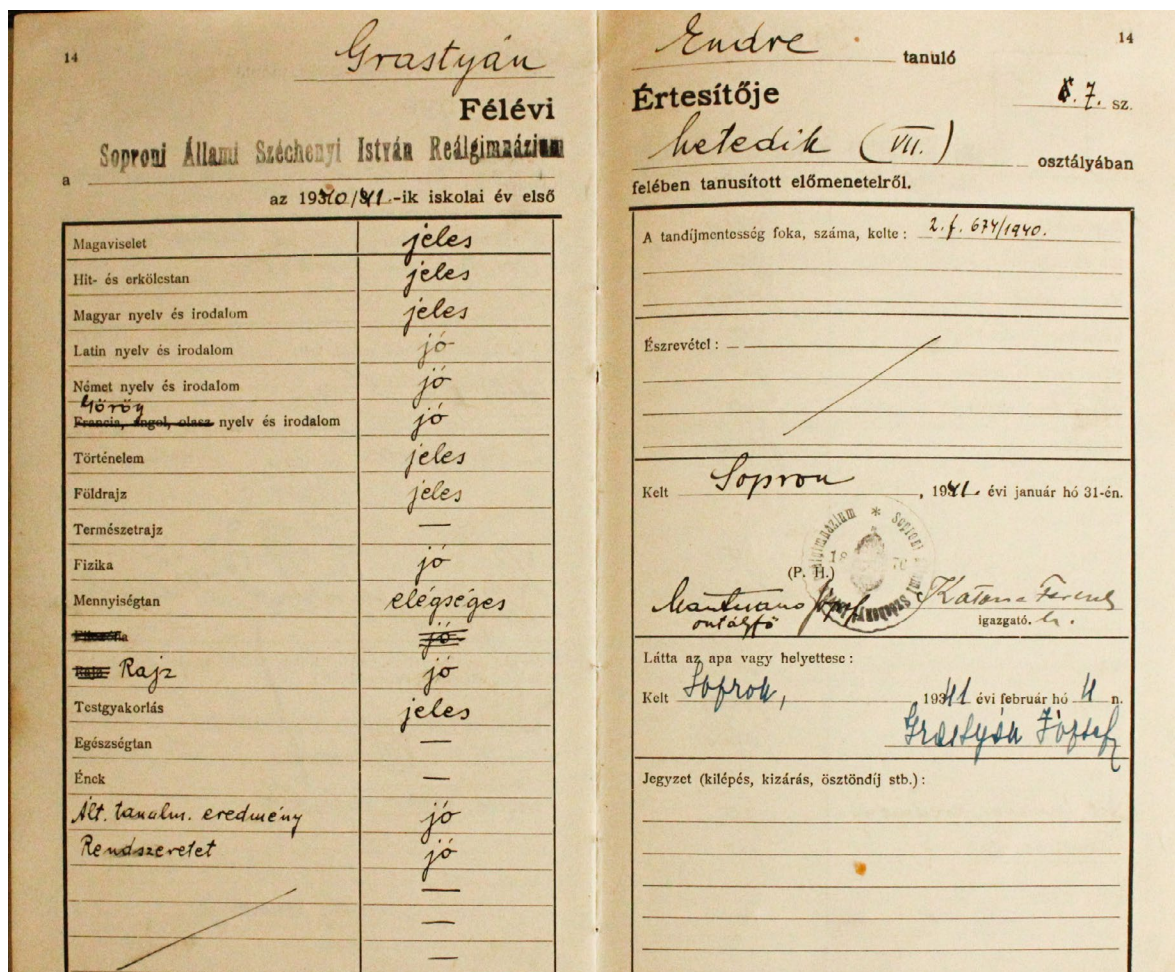 14
Grastyán
Félévi
Soproni Állami Széchenyi István Reálgimnázium
a
az 1940/41.-ik iskolai év első
Magaviselet jeles
Hit- és erkölcstan jeles
Magyar nyelv és irodalom jeles
Latin nyelv és irodalom jó
Német nyelv és irodalom jó
Görög
Francia, angol, olasz nyelv és irodalom jó
Történelem jeles
Földrajz jeles
Természetrajz —
Fizika jó
Mennyiségtan elégséges
jó
Rajz jó
Testgyakorlás jeles
Egészségtan —
Ének —
Ált. tanulm. eredmény jó
Rendszeretet jó
—
—
—
14
Endre tanuló
Értesítője 7. sz.
hetedik (VII.) osztályában
felében tanusított előmenetelről.
A tandíjmentesség foka, száma, kelte: 2. f. 674/1940.
Észrevétel:
Kelt Sopron, 1941. évi január hó 31-én.
(P. H.)
József Katona Ferenc
osztályfő igazgató. h.
Látta az apa vagy helyettese:
Kelt Sopron, 1941 évi február hó 4 n.
Grastyán József
Jegyzet (kilépés, kizárás, ösztöndíj stb.):